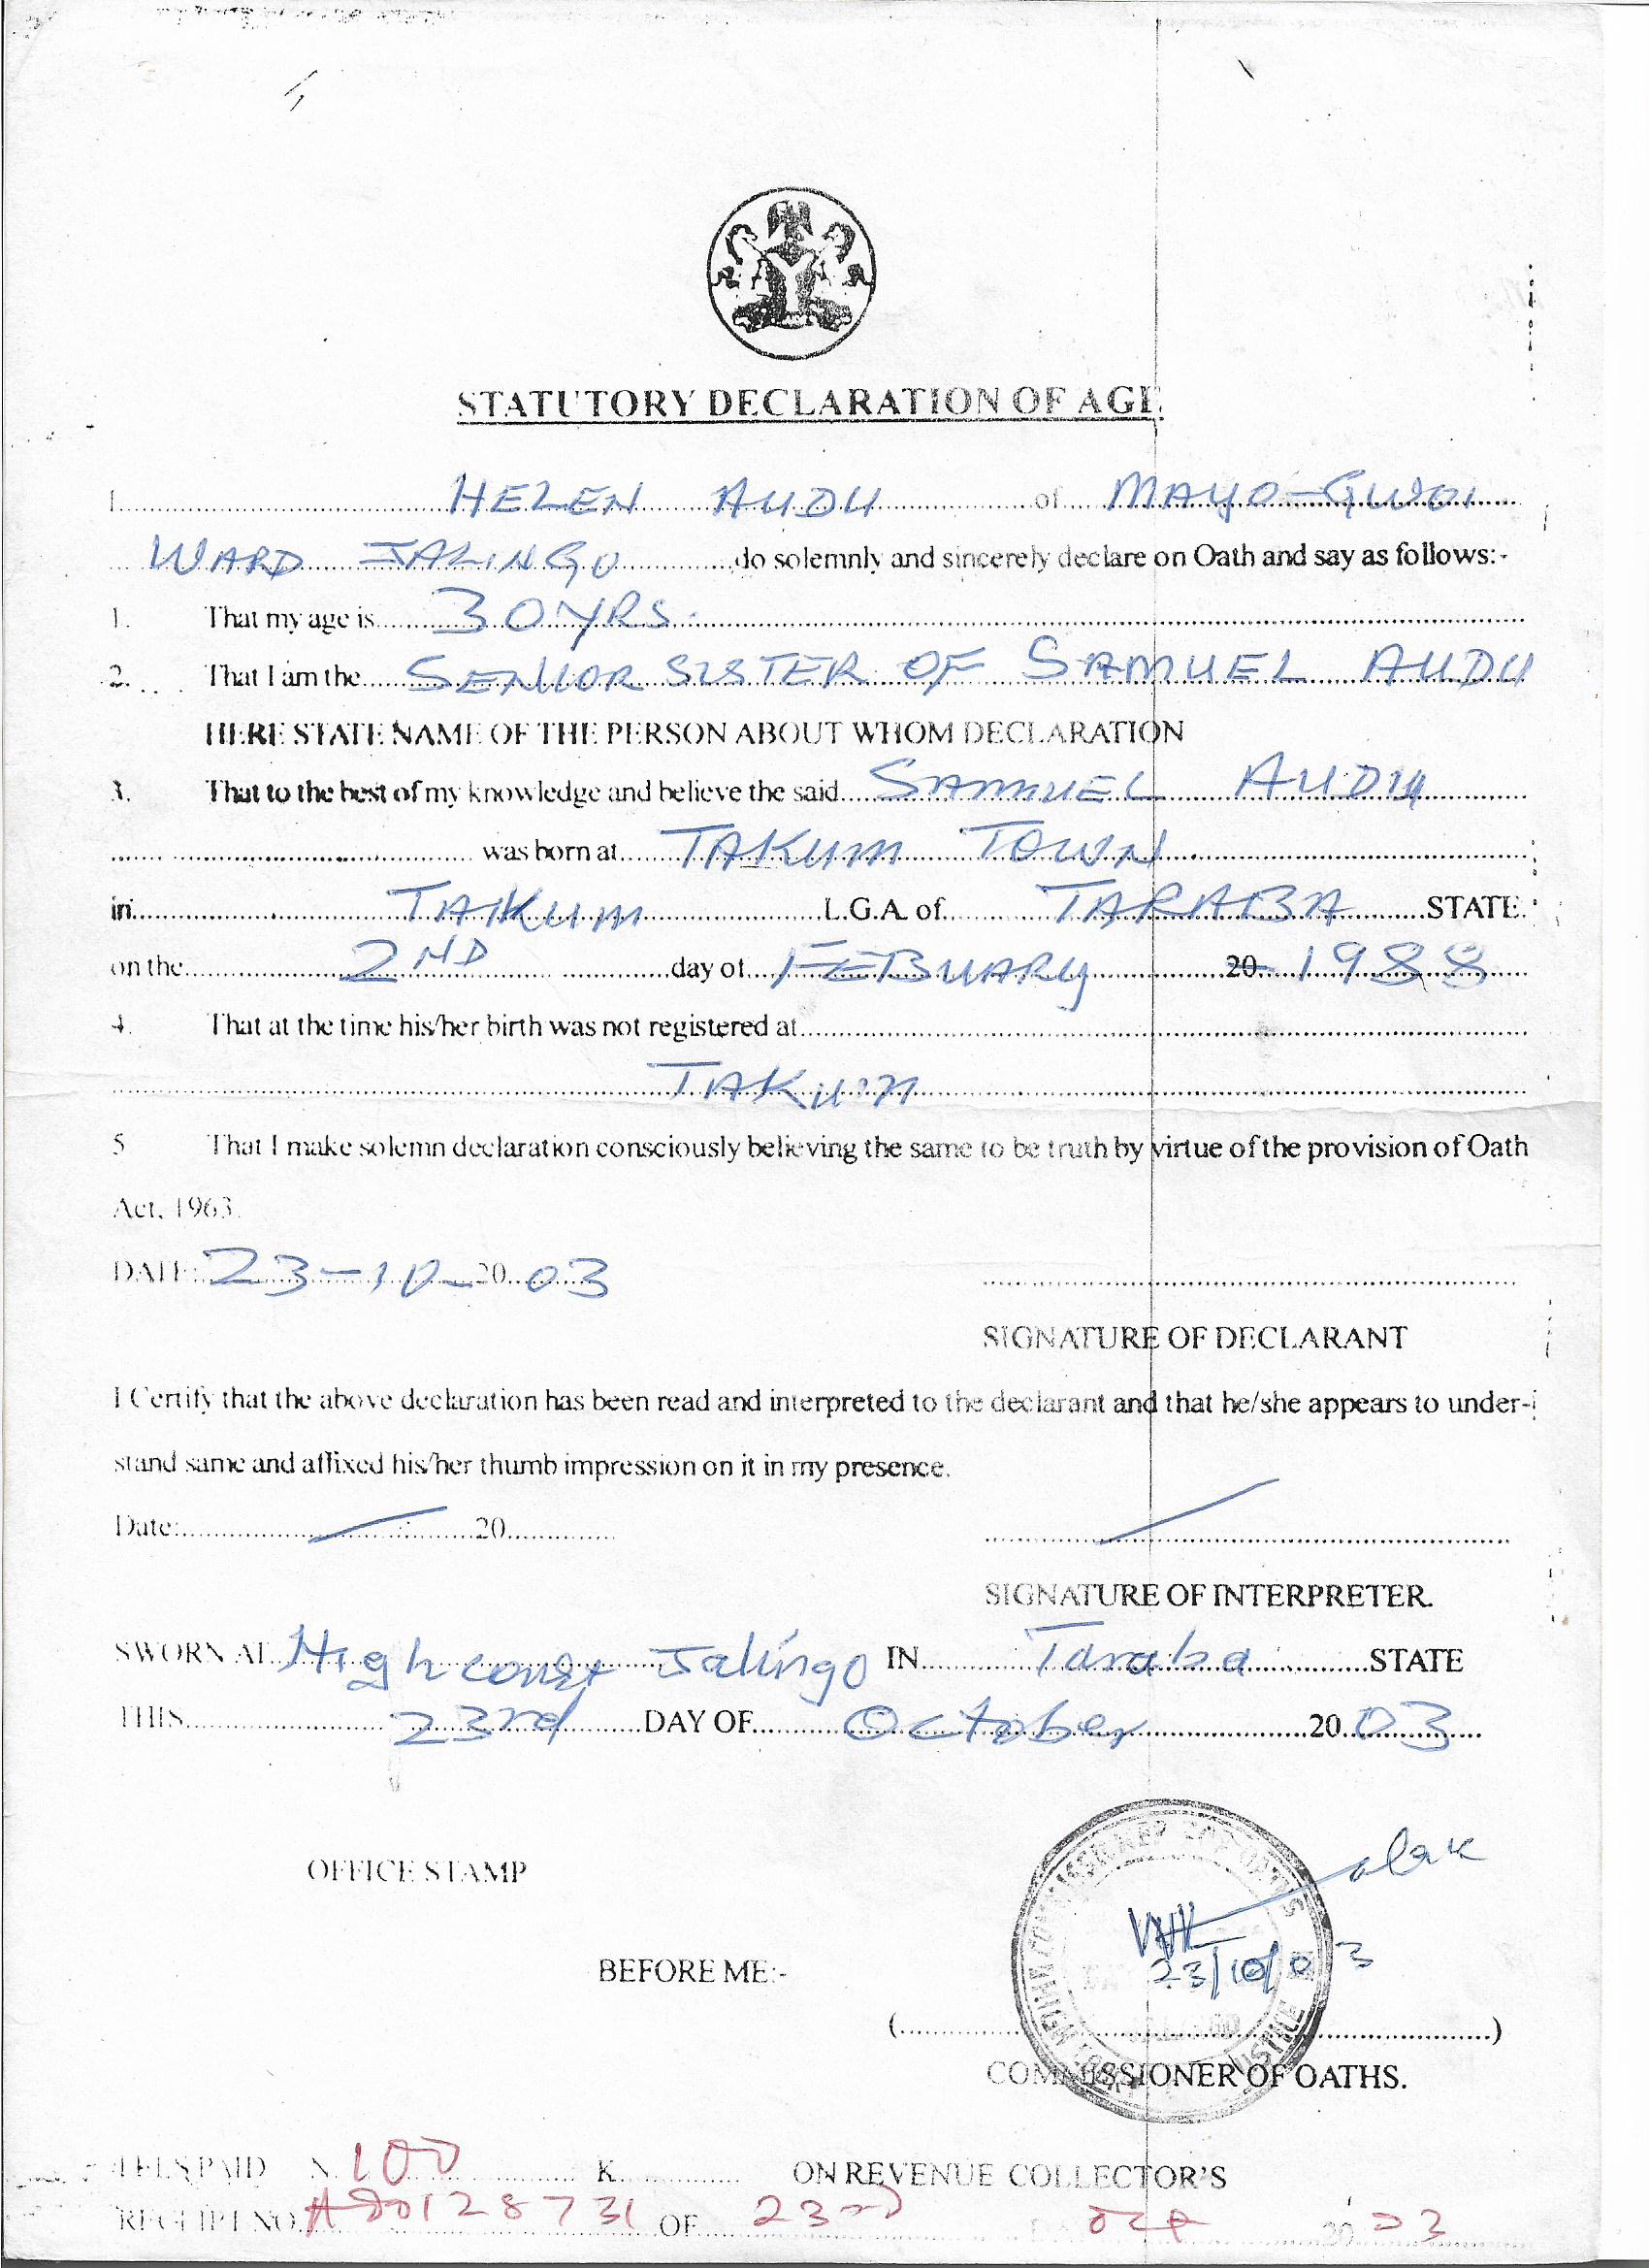 STATUTORY DECLARATION OF AGE
I HELEN AUDU of MAYO-GWOI
WARD JALINGO do solemnly and sincerely declare on Oath and say as follows:-
1. That my age is 30YRS.
2. That I am the SENIOR SISTER OF SAMUEL AUDU
HERE STATE NAME OF THE PERSON ABOUT WHOM DECLARATION
3. That to the best of my knowledge and believe the said SAMUEL AUDU
was born at TAKUM TOWN
in TAKUM L.G.A. of TARABA STATE.
on the 2ND day of FEBUARY 20 1988
4. That at the time his/her birth was not registered at
TAKUM
5 That I make solemn declaration consciously believing the same to be truth by virtue of the provision of Oath
Act, 1963.
DATE: 23-10-20 03
SIGNATURE OF DECLARANT
I Certify that the above declaration has been read and interpreted to the declarant and that he/she appears to under-
stand same and affixed his/her thumb impression on it in my presence.
Date: 20
SIGNATURE OF INTERPRETER.
SWORN AT High court Jalingo IN Taraba STATE
THIS 23rd DAY OF October 20 03
OFFICE STAMP
23/10/03
BEFORE ME:-
( )
COMMISSIONER OF OATHS.
FEES PAID N 100 K ON REVENUE COLLECTOR'S
RECEIPT NO. OF 23rd Oct 20 03